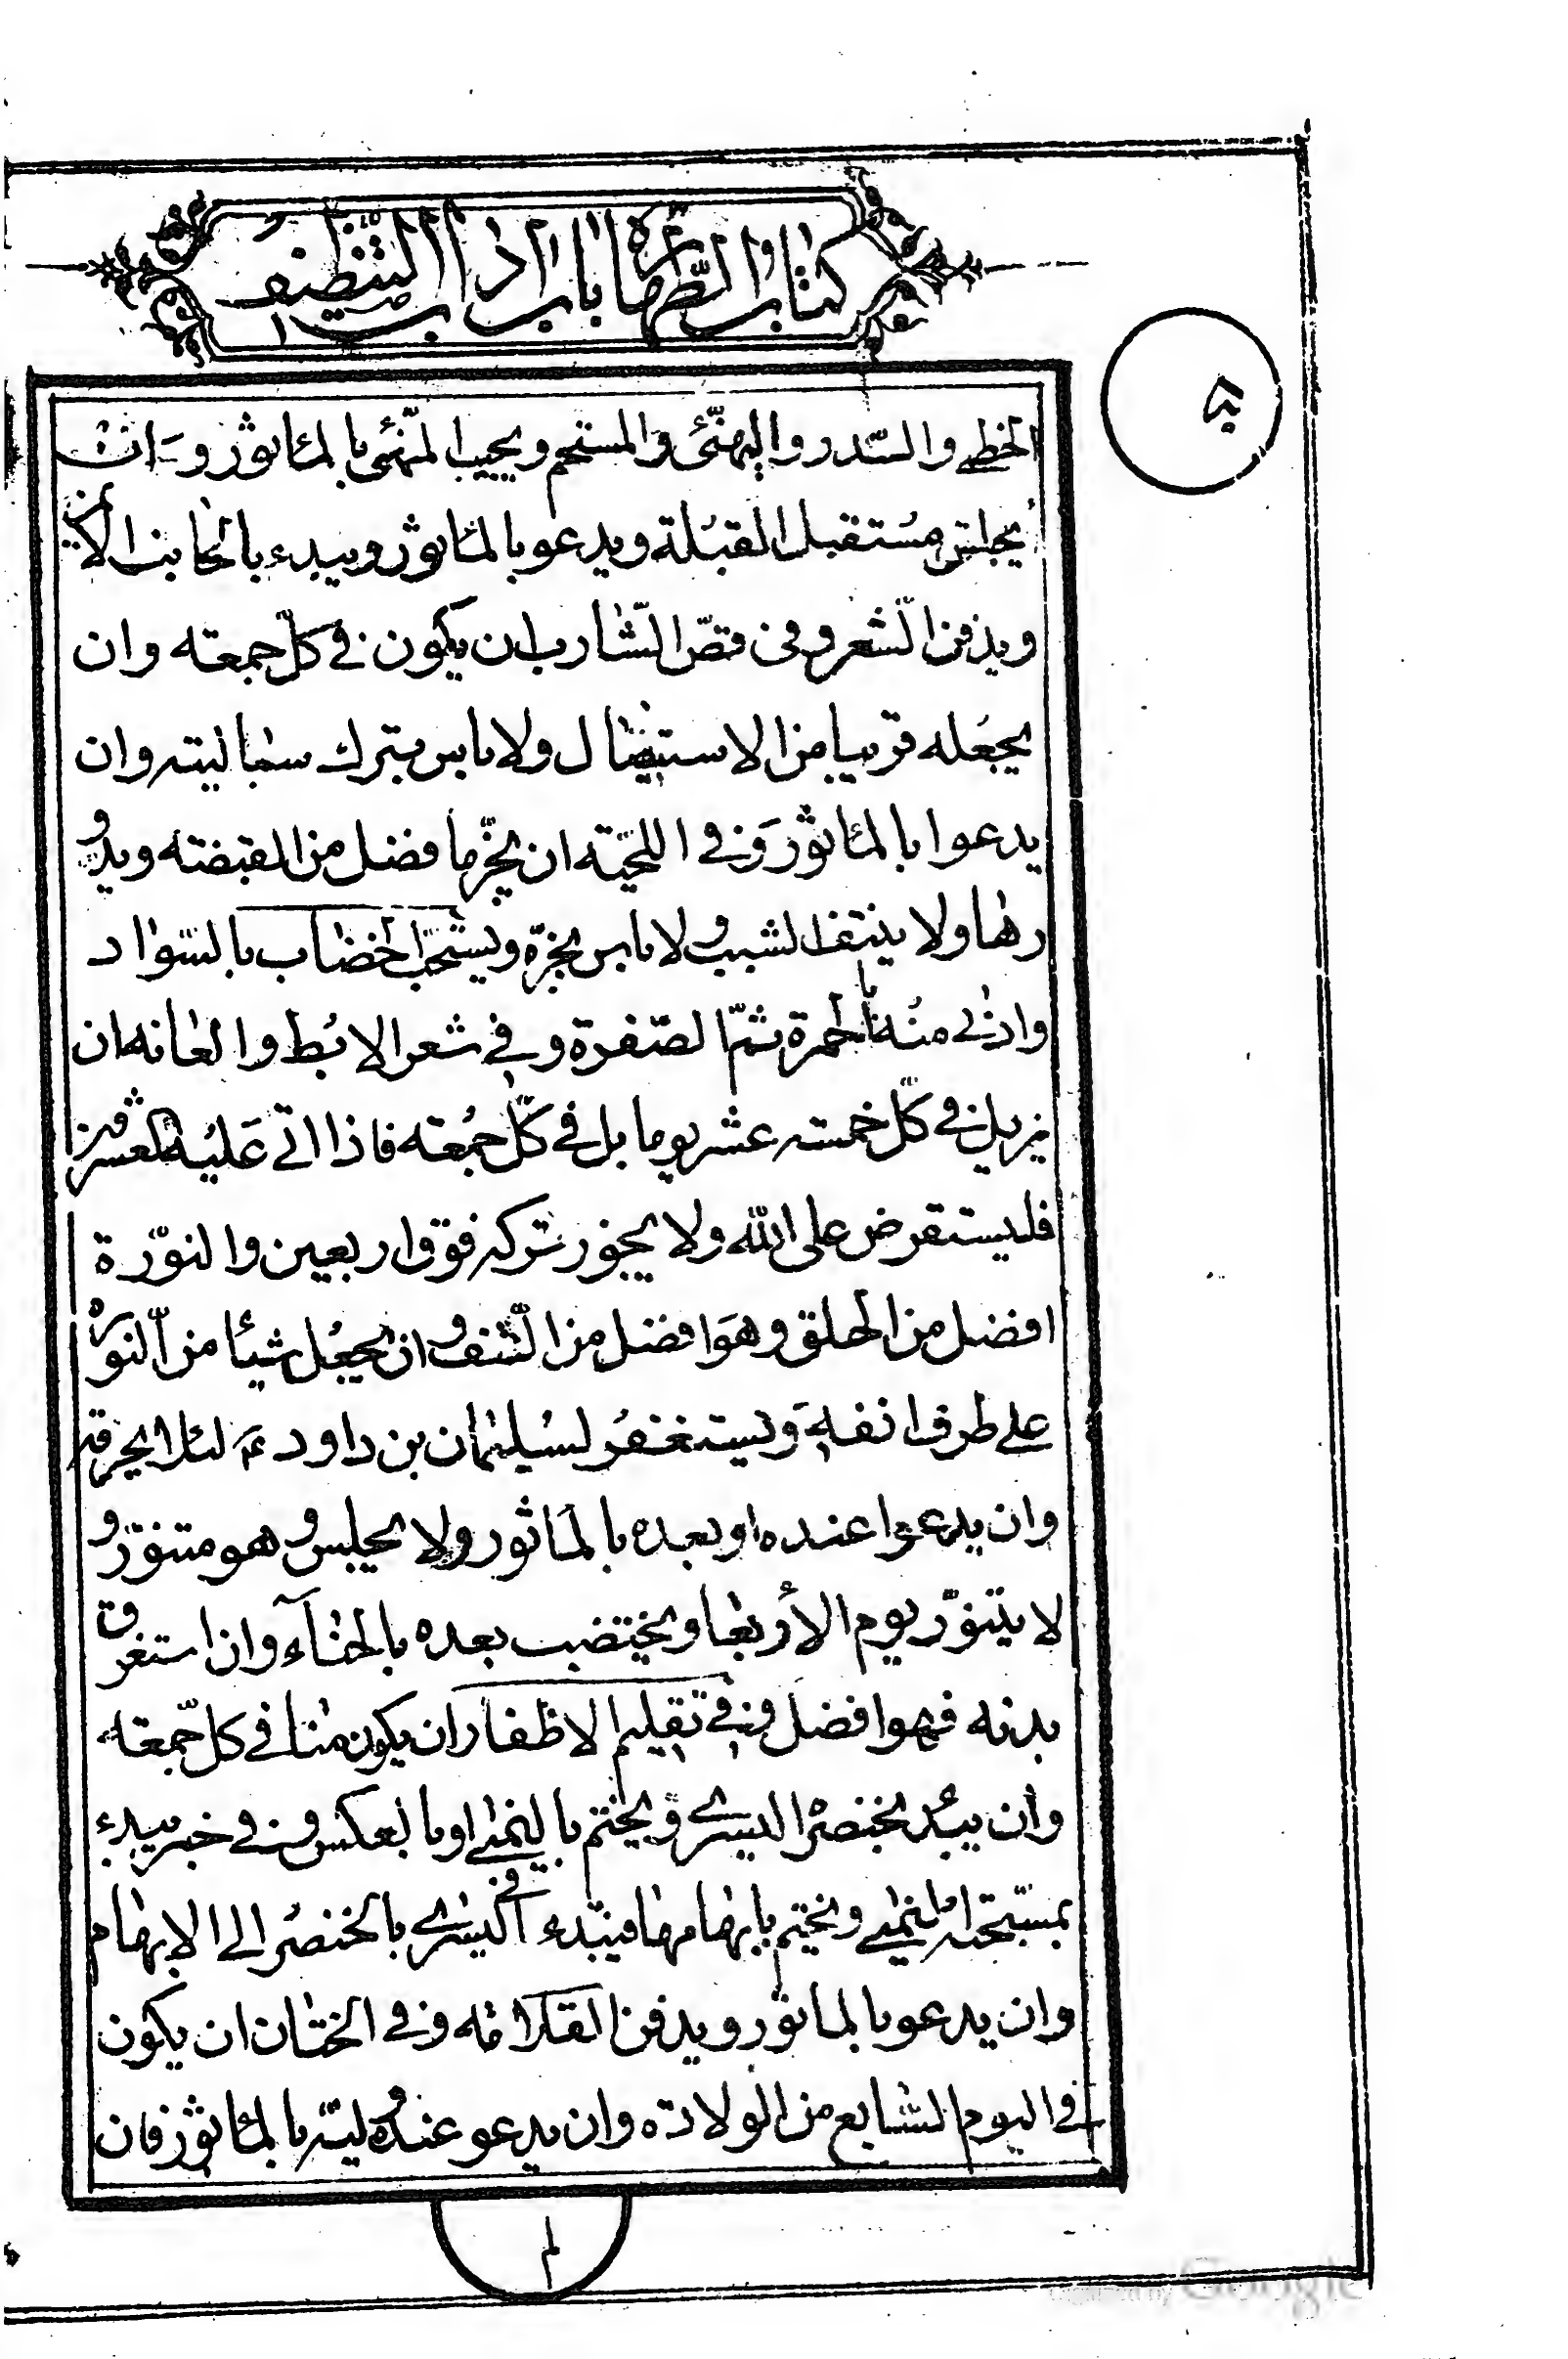 كتاب الطهارة باب اداب التنظيف
۵
الخطمي والسّدر والهنّئ والمستحم ويجيب المنّهئى بالماثور و ان
يجلس مستقبل القبلة ويدعو بالماثور ويبدء بالجانب الأيمن
ويدفن الشعر وفى قصّ الشّارب ان يكون في كلّ جمعته وان
يجعله قريبا من الاستيصال ولا باس بترك سباليته وان
يدعوا بالماثور وفي اللحيّته ان يجزّ ما فضل من القبضته ويدو
رها ولا ينتف الشيب ولا باس بجزّه ويستحب الخضاب بالسّواد
وادنى منه بالحمرة ثمّ الصّفرة وفي شعر الابط والعانه ان
يزيل في كلّ خمسته عشر يوما بل في كلّ جمعته فاذا اتى عليه عشرين
فليستقرض على الله ولا يجوز تركه فوق اربعين والنوّرة
افضل من الحلق وهو افضل من النّتف وان يجعل شيئا من النوره
على طرف انفه ويستغفر لسليمان بن داود ع لئلا يحرقه
وان يدعوا عنده او بعده بالماثور ولا يجلس وهو متنوّر و
لا يتنوّر يوم الأربعا ويختضب بعده بالحنآء وان استغرق
بدنه فهو افضل وفي تقليم الاظفار ان يكون في كل جمعته
وان يبدء بخنصر اليسرى ويختم باليمنى او بالعكس وفي خبر يبدء
بمسبّحته اليمنى ويختم بابهامها فيبتدء في اليسرى بالخنصر الى الابهام
وان يدعو بالماثور ويدفن القلامه وفي الختان ان يكون
في اليوم السّابع من الولادته وان يدعو عنده وليّه بالماثور فان
Google